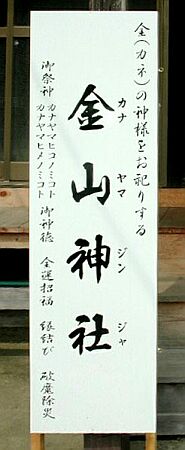 金(カネ)の神様をお祀りする
金山神社
カナ ヤマ ジン ジャ
御祭神 カナヤマヒコノミコト カナヤマヒメノミコト 御神徳 金運招福 縁結び 破魔除災